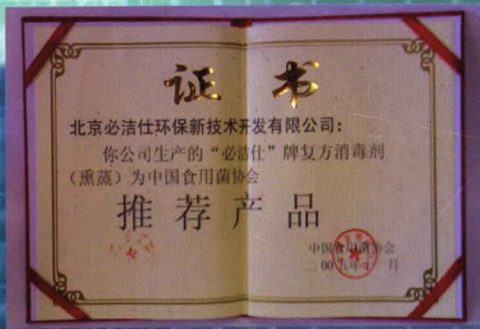 证书
北京必洁仕环保新技术开发有限公司：
你公司生产的“必洁仕”牌复方消毒剂
（熏蒸）为中国食用菌协会
推荐产品
中国食用菌协会
二00九年十 月